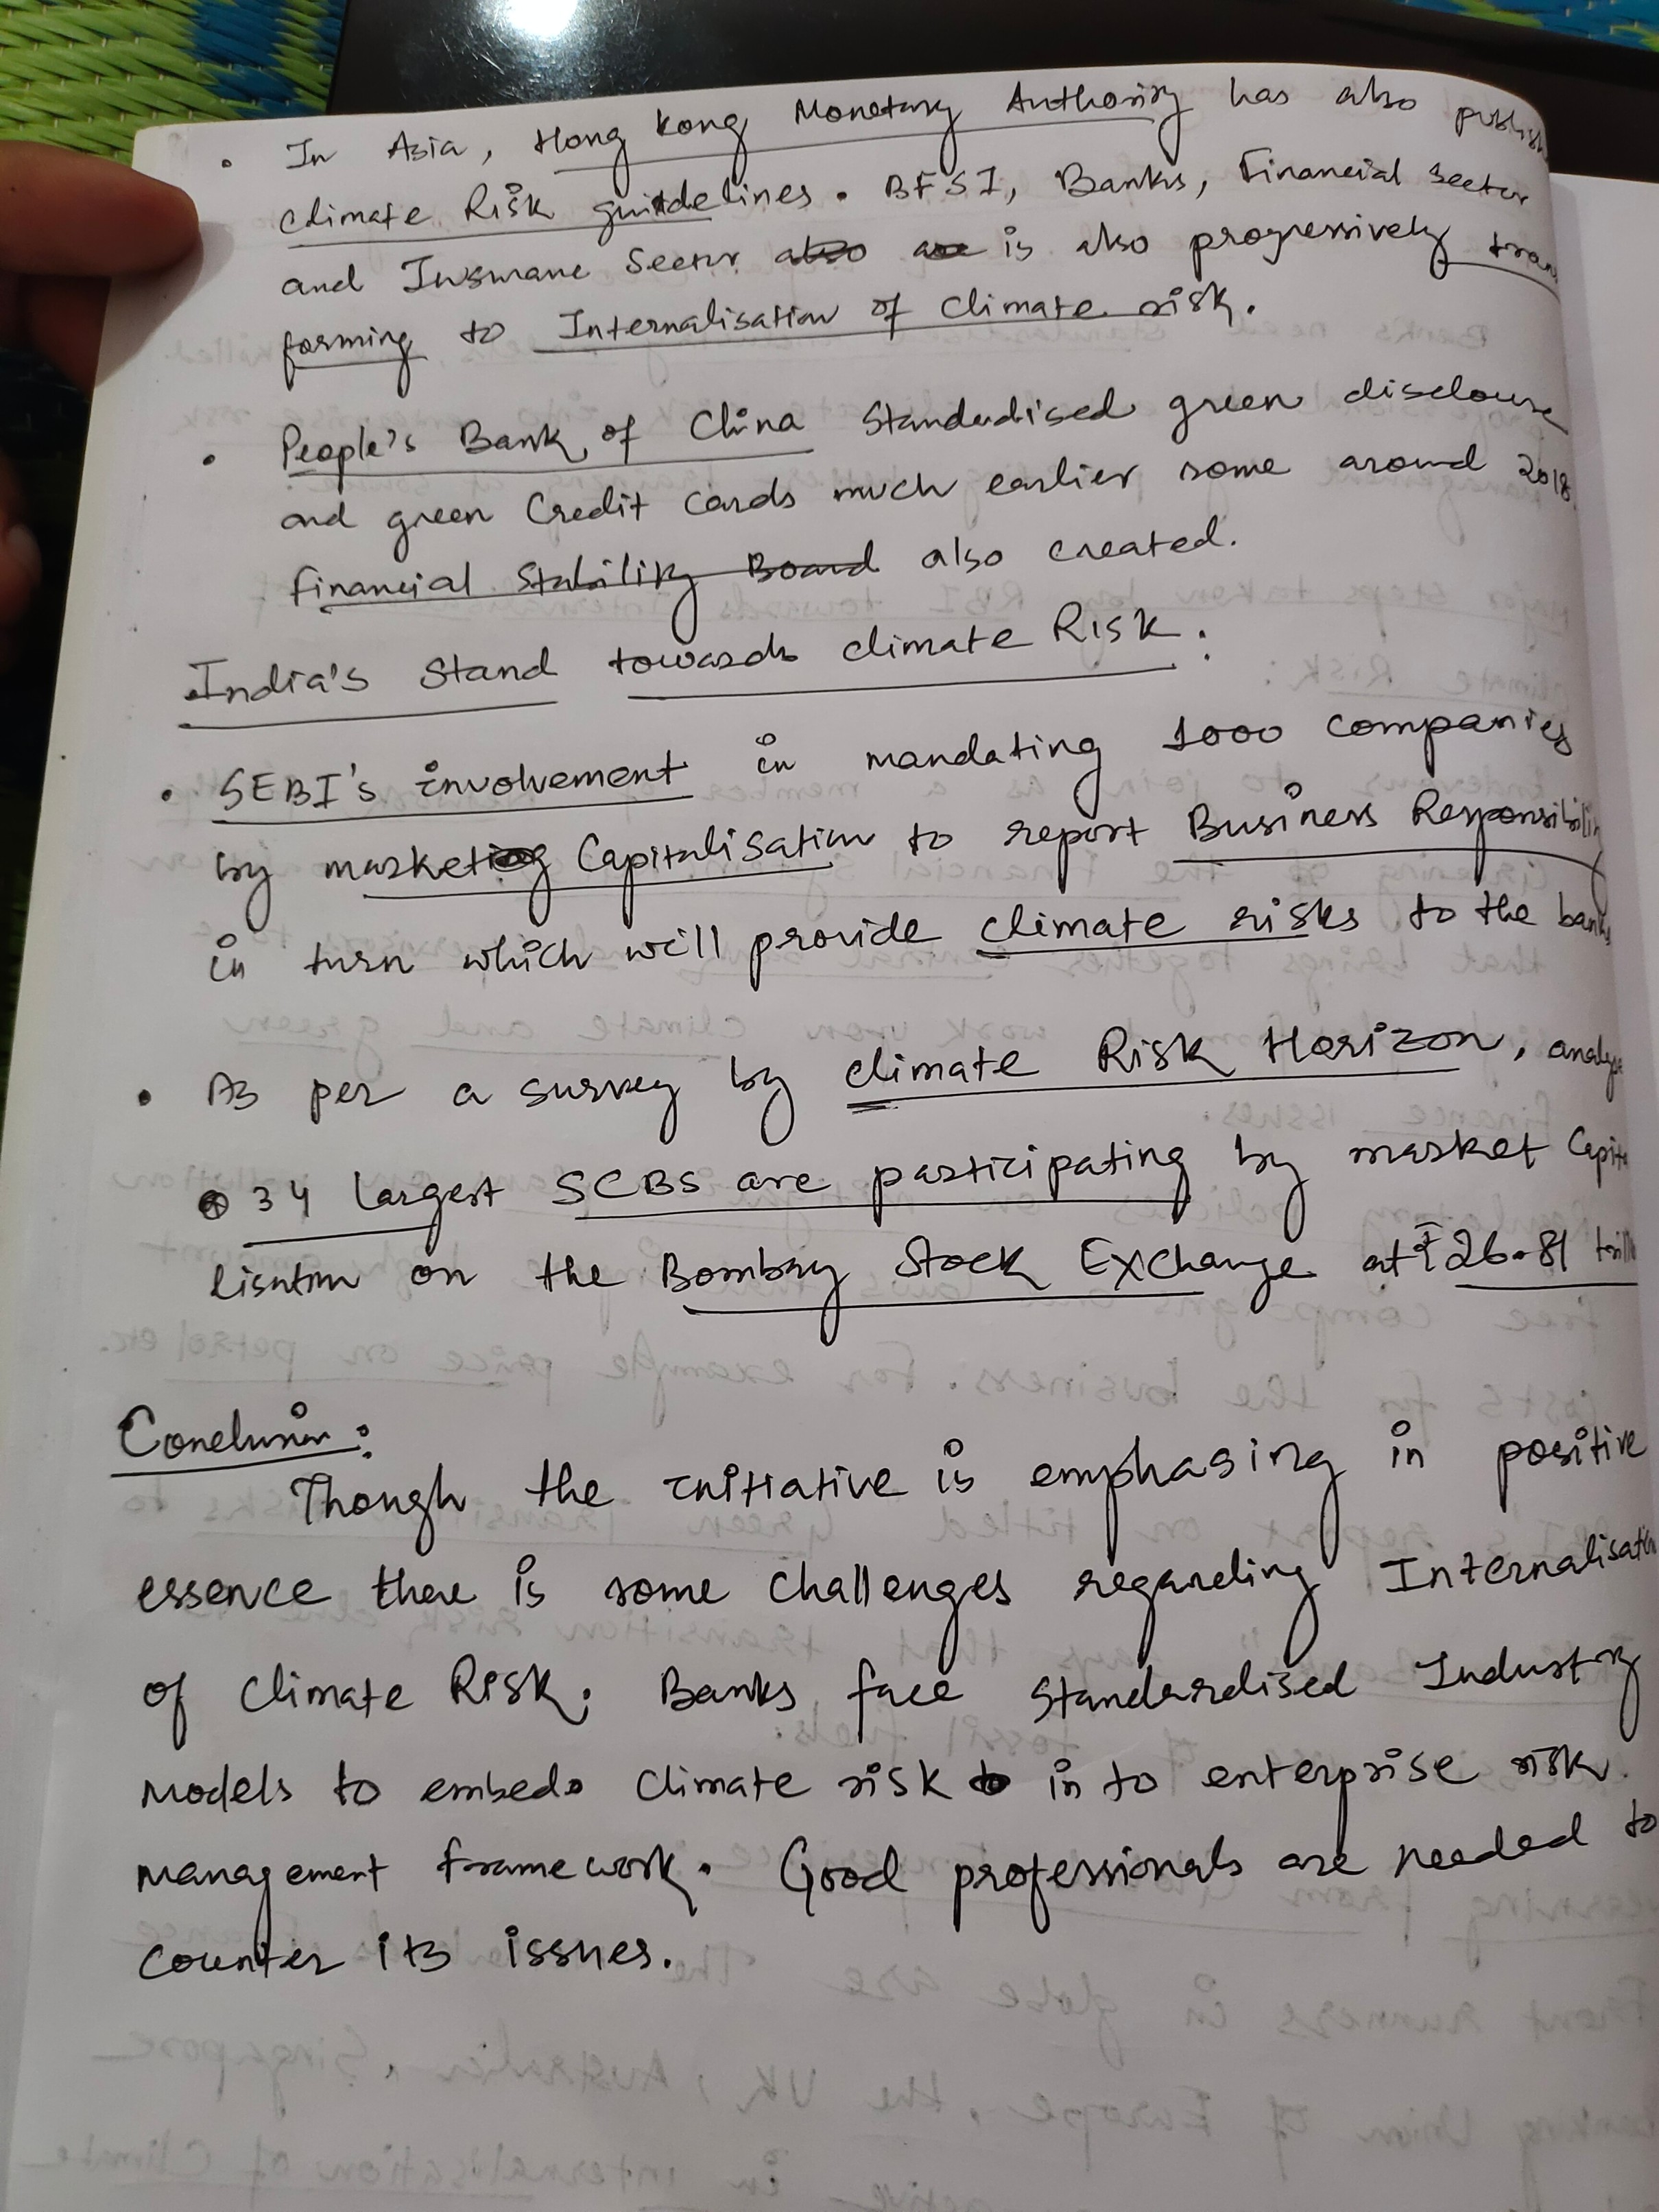 • In Asia, Hong Kong Monetary Authority has also publish
climate Risk guidelines. BFSI, Banks, Financial Sector
and Insurane Sector also are is also progressively trans
forming to Internalisation of climate risk.
• People's Bank of China Standardised green disclosure
and green Credit Cards much earlier some around 2018.
Financial Stability Board also created.
India's Stand towards climate Risk:
• SEBI's involvement in mandating 1000 companies
by market Capitalisation to report Business Responsibility
in turn which will provide climate risks to the banks
• As per a survey by climate Risk Horizon, analys
34 largest SCBS are participating by market Capita
lisation on the Bombay Stock Exchange at ₹26.81 trillio
Conclusion:
Though the initiative is emphasing in positive
essence there is some challenges regarding Internalisation
of climate Risk. Banks face standardised Industry
models to embed climate risk in to enterprise risk
management framework. Good professionals are needed to
counter its issues.